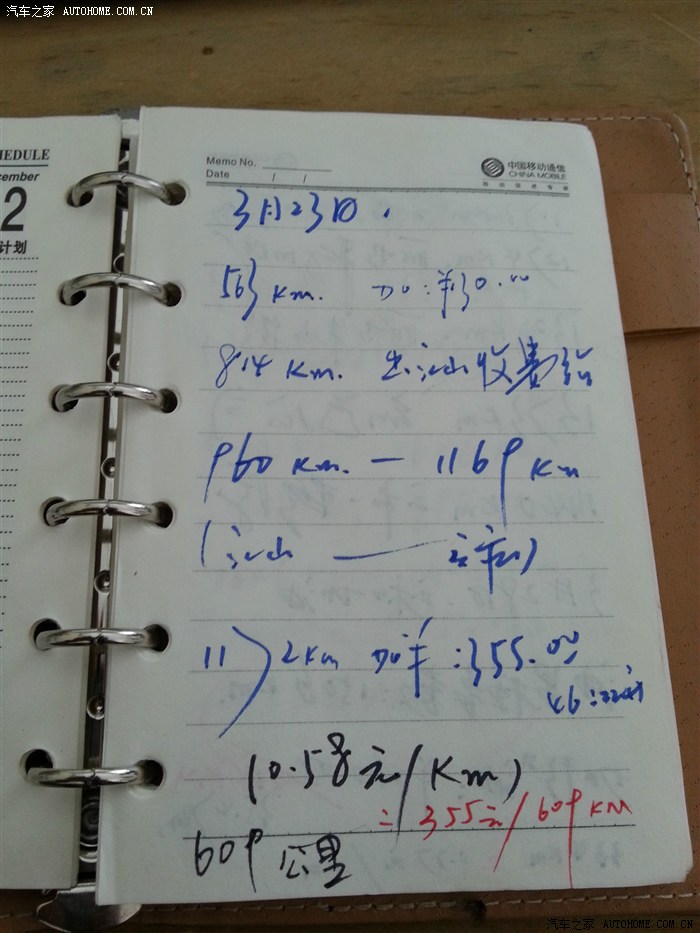 汽车之家 AUTOHOME.COM.CN
HEDULE
cember
2
计划
Memo No.
Date / /
中国移动通信
CHINA MOBILE
3月23日.
563 Km. 加:¥30.00
814 Km. 出江山收费站
960 Km. — 1169 Km
(江山 ——
1172Km 加¥:355.00
(0.58元/Km)
=355元/609KM
609公里
汽车之家 AUTOHOME.COM.CN